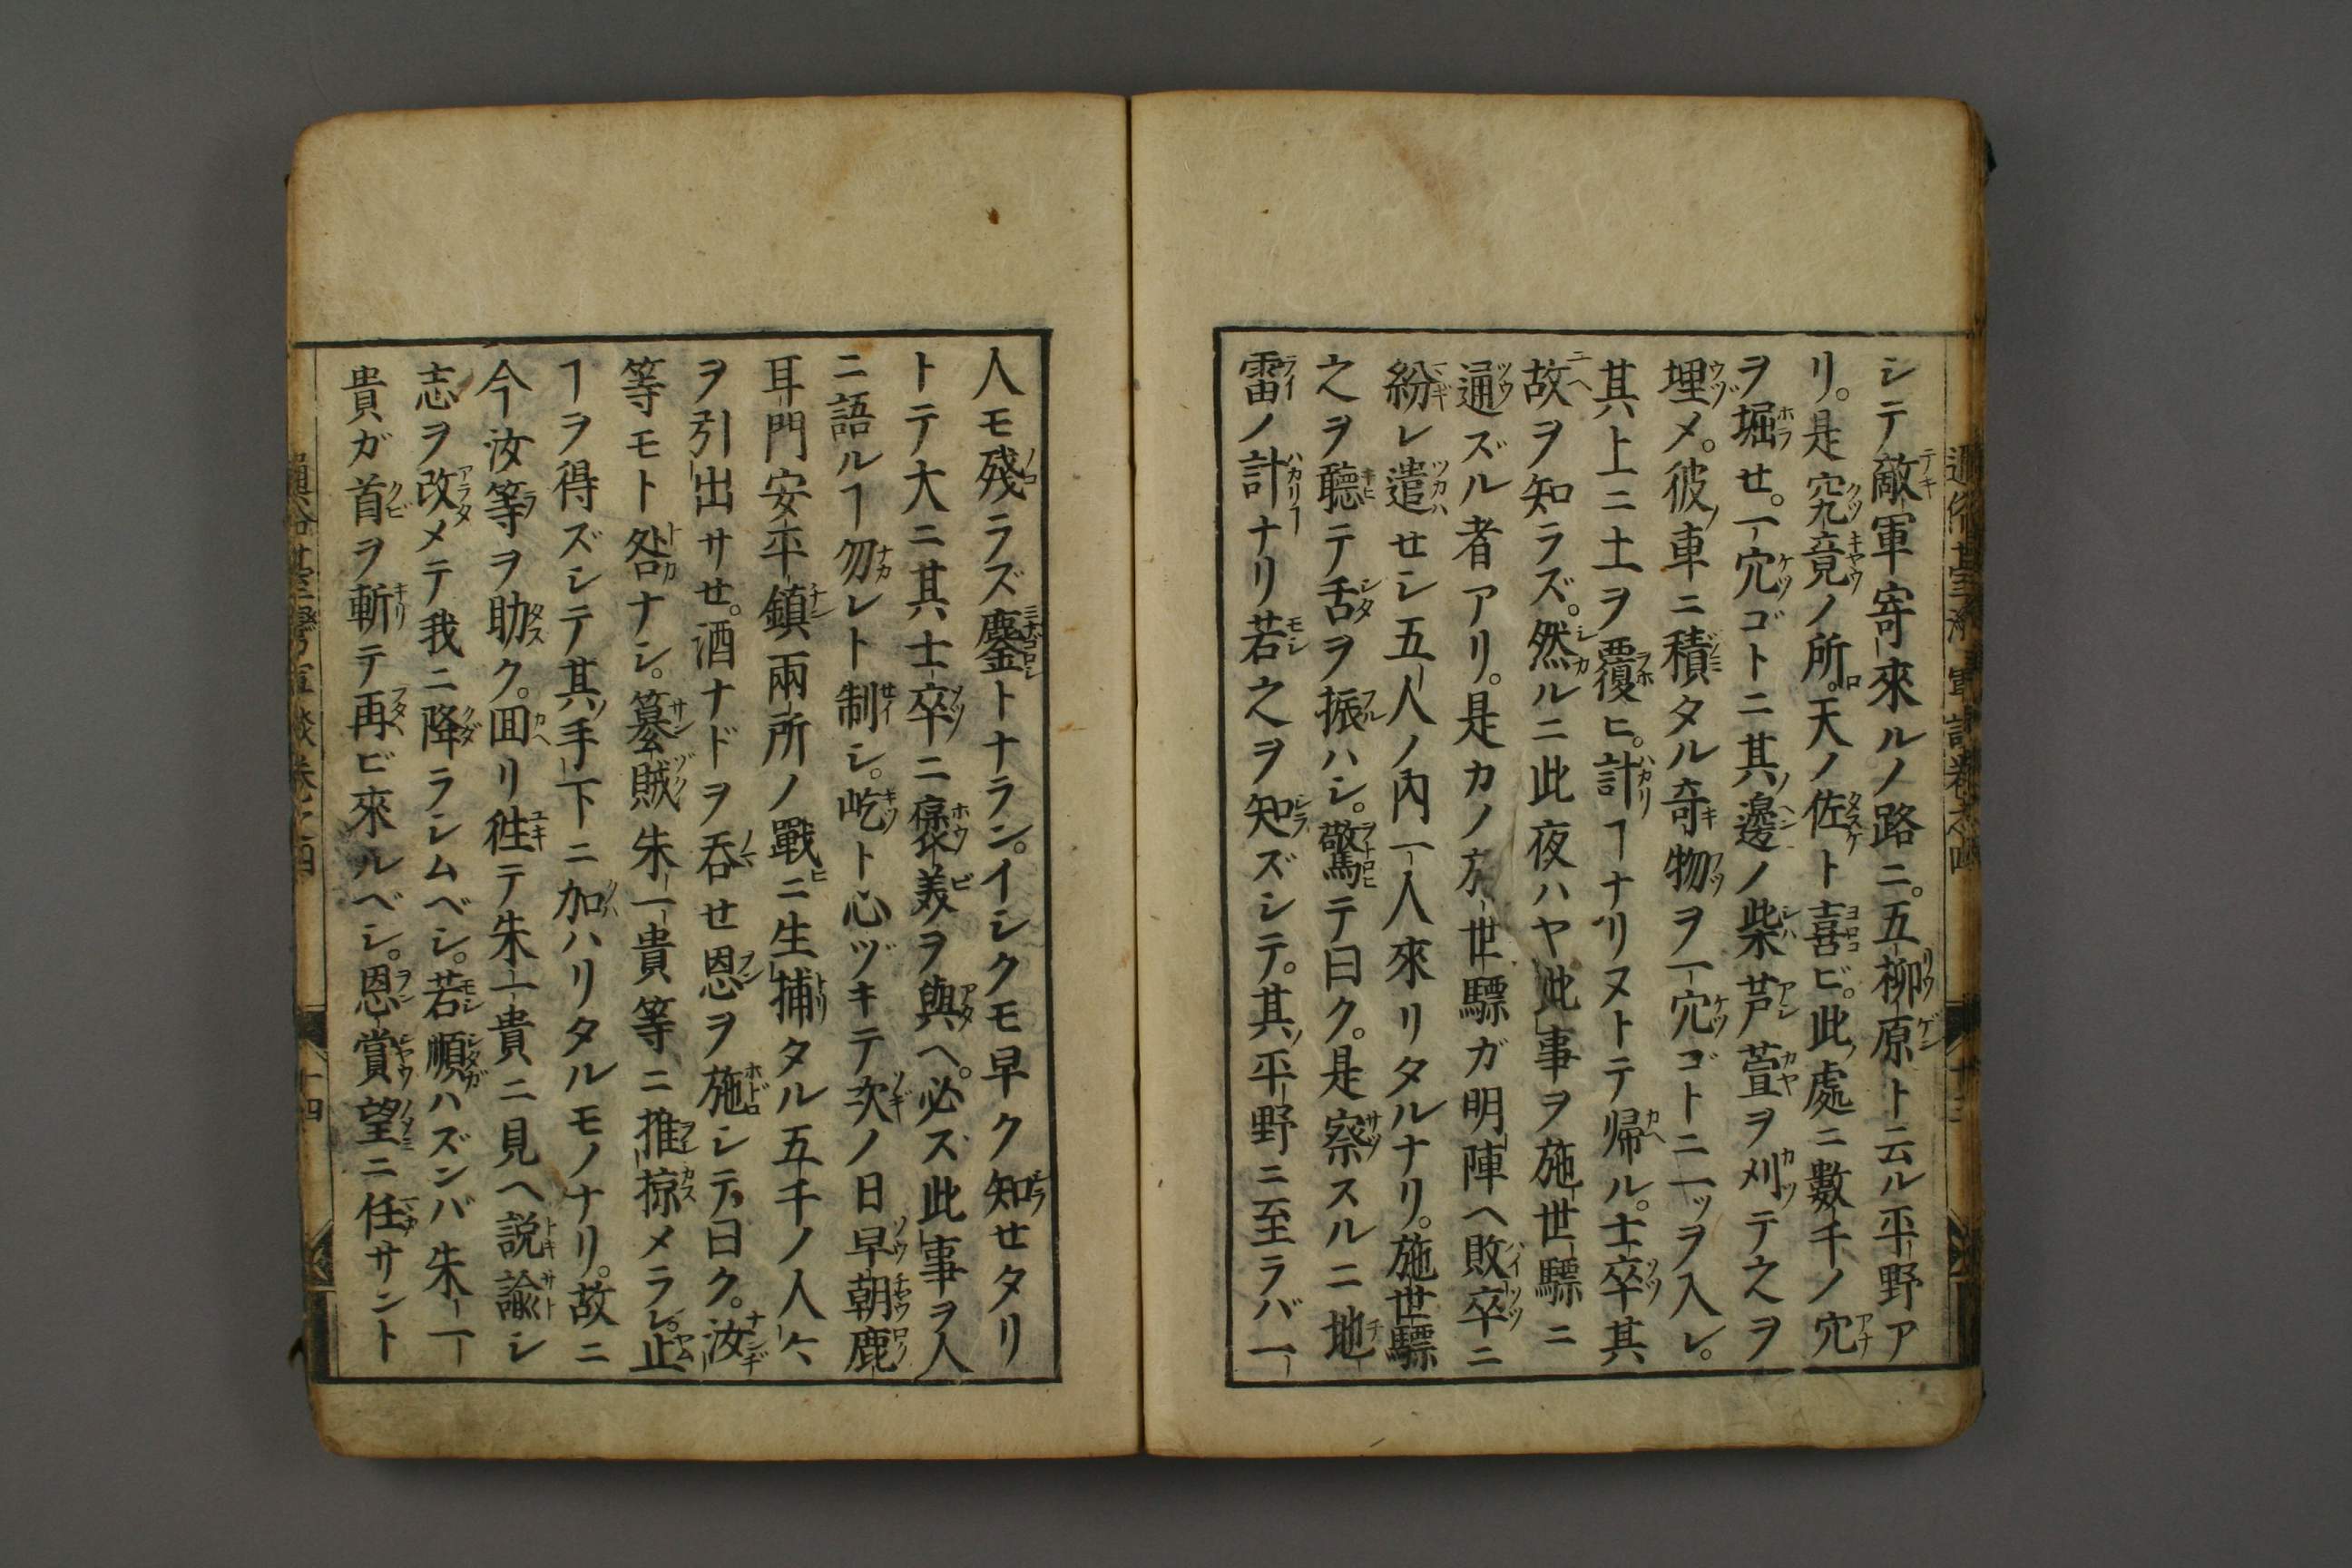 シテ敵軍寄來ルノ路ニ。五柳原ト云ル平野ア
リ。是究竟ノ所。天ノ佐ト喜ビ。此處ニ數千ノ穴
ヲ堀せ。一穴ゴトニ其邊ノ柴芦萱ヲ刈テ之ヲ
埋メ。彼車ニ積タル奇物ヲ一穴ゴトニ一ッヲ入レ。
其上ニ土ヲ覆ヒ。計ヿナリヌトテ帰ル。士卒其
故ヲ知ラズ。然ルニ此夜ハヤ此事ヲ施世驃ニ
通ズル者アリ。是カノ方世驃ガ明陣ヘ敗卒ニ
紛レ遣せシ五人ノ内一人來リタルナリ。施世驃
之ヲ聽テ舌ヲ振ハシ。驚テ曰ク。是察スルニ地
雷ノ計ナリ若之ヲ知ズシテ。其平野ニ至ラバ一
人モ殘ラズ鏖トナラン。イシクモ早ク知せタリ
トテ大ニ其士卒ニ褒美ヲ與ヘ。必ズ此事ヲ人
ニ語ルヿ勿レト制シ。屹ト心ヅキテ次ノ日早朝鹿
耳門安平鎮兩所ノ戰ニ生捕タル五千ノ人々
ヲ引出サせ。酒ナドヲ呑せ恩ヲ施シテ曰ク。汝
等モト咎ナシ。簒賊朱一貴等ニ推掠メラレ。止
ヿヲ得ズシテ其手下ニ加ハリタルモノナリ。故ニ
今汝等ヲ助ク。囬リ徃テ朱一貴ニ見ヘ説諭シ
志ヲ改メテ我ニ降ラシムベシ。若順ハズンバ朱一
貴ガ首ヲ斬テ再ビ來ルベシ。恩賞望ニ任サント